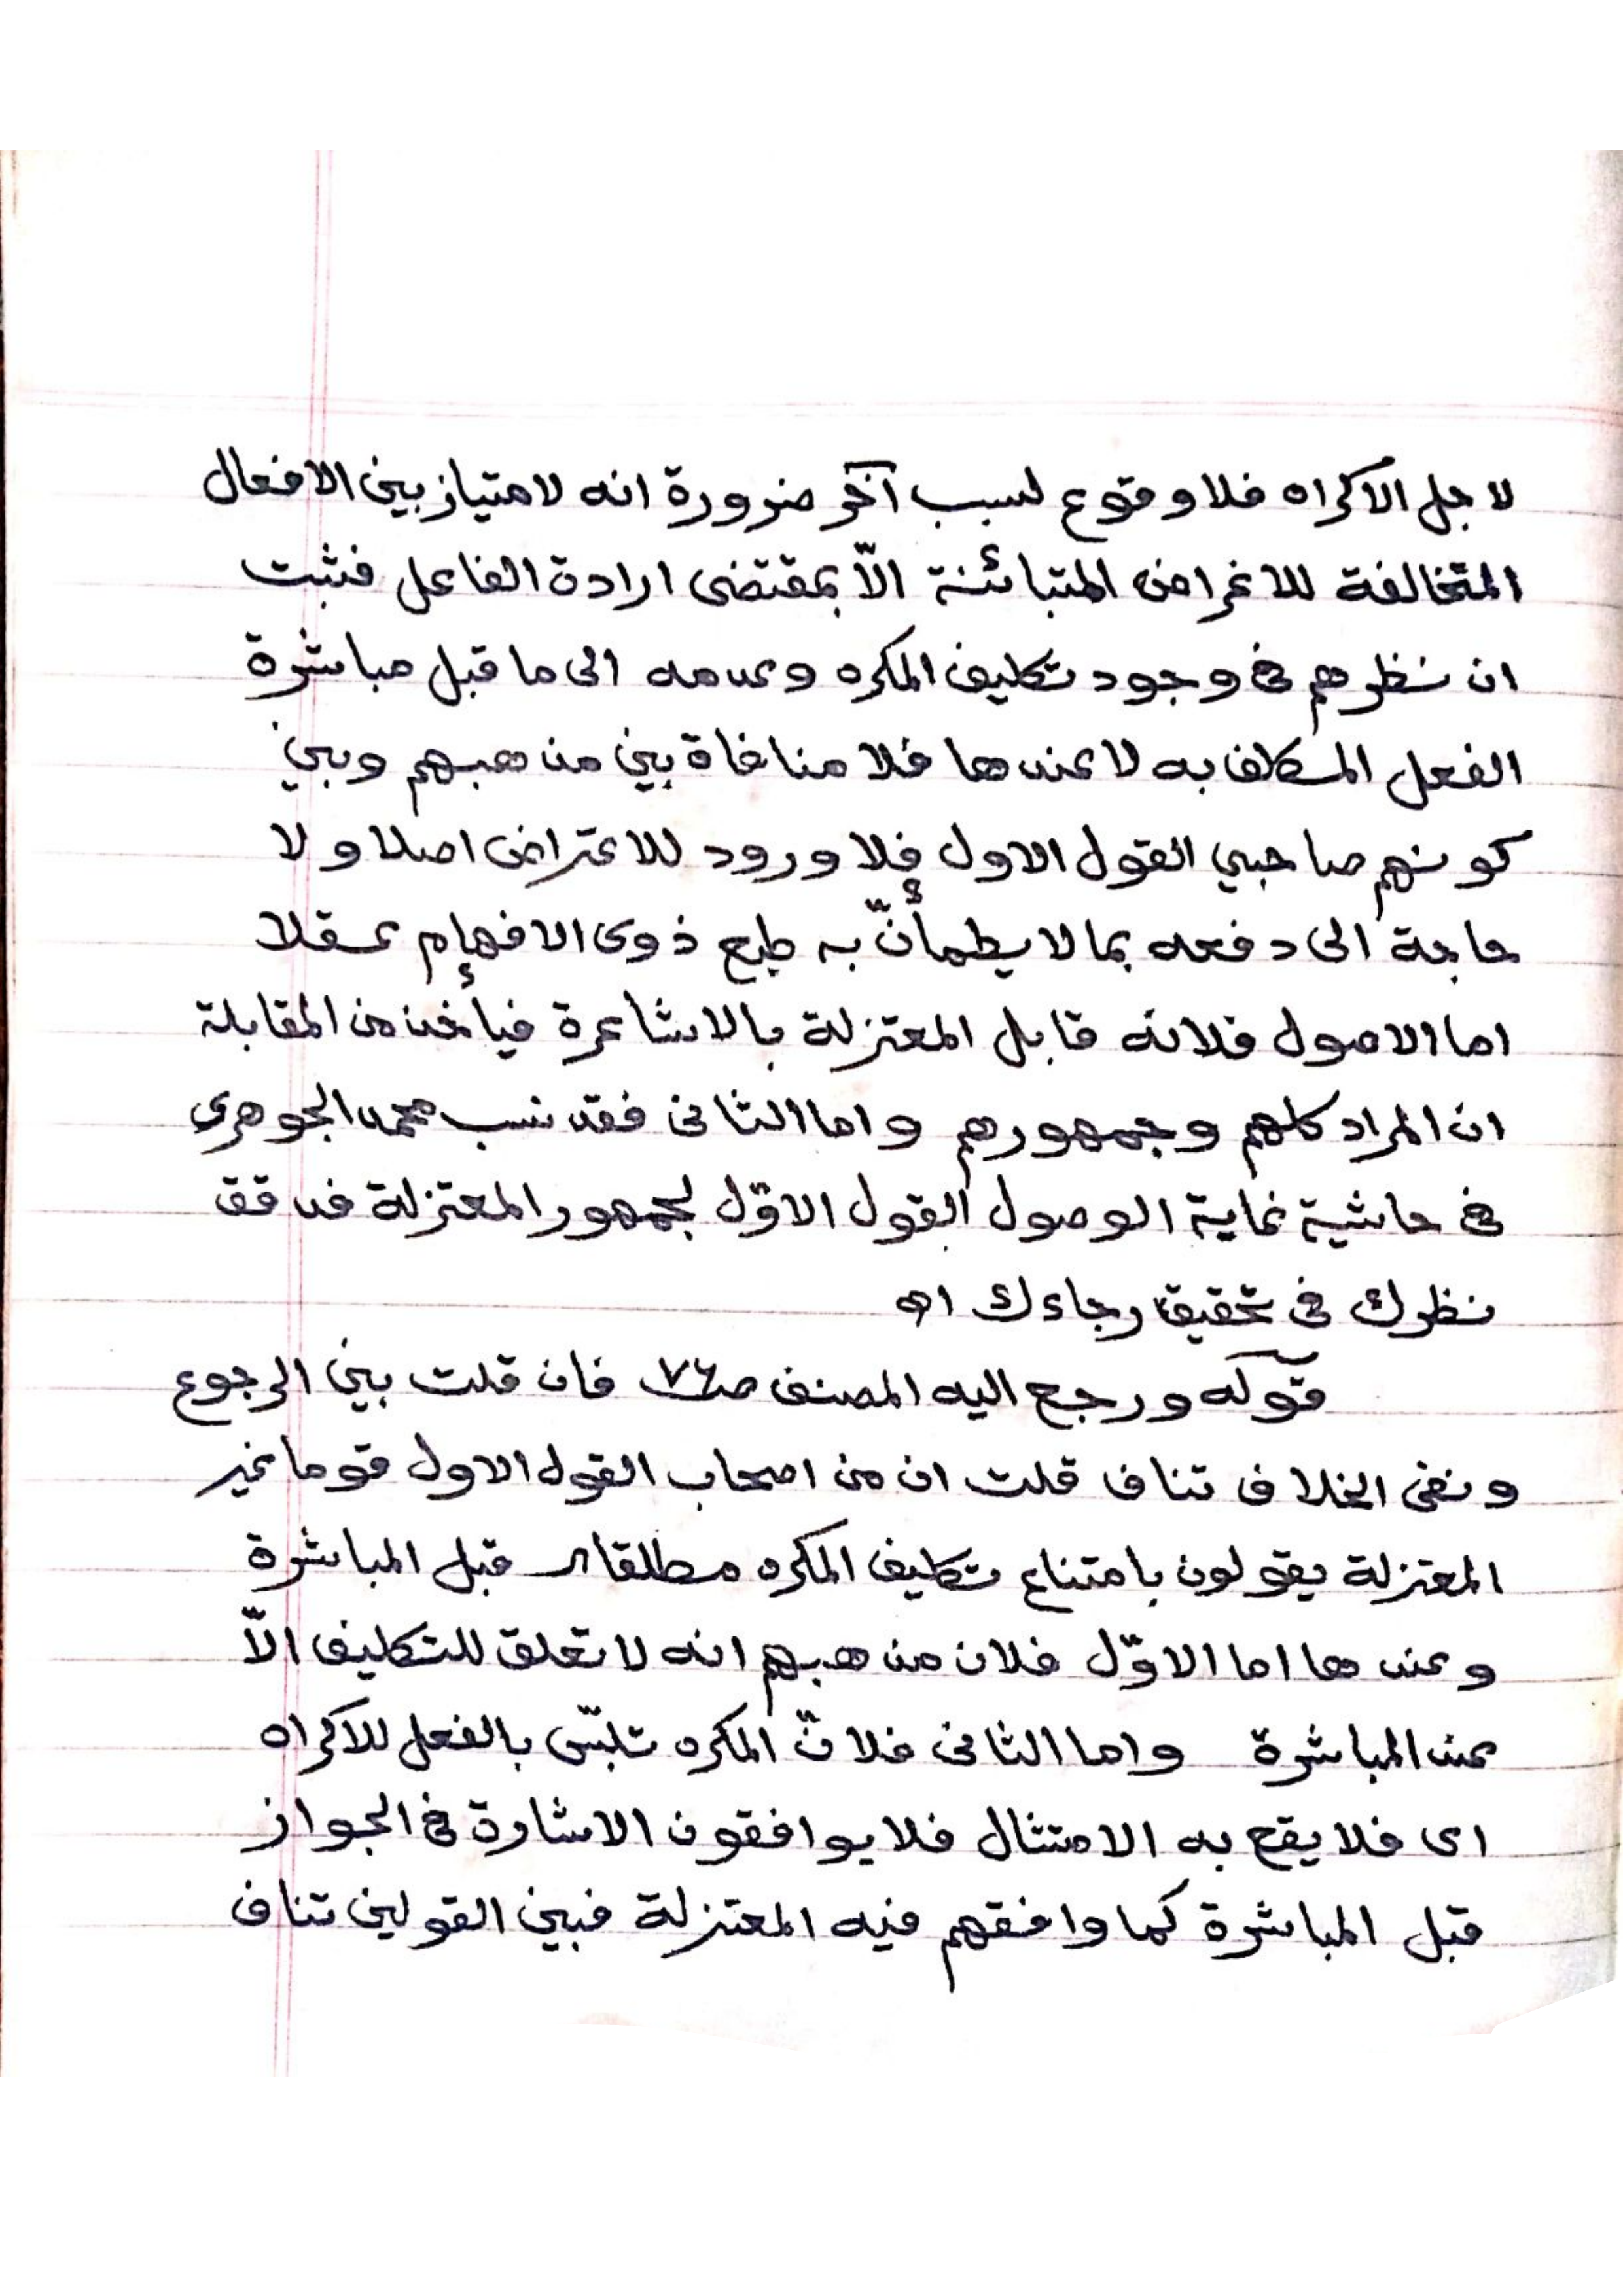 لاجل الاكراه فلا وقوع لسبب آخر ضرورة انه لامتياز بين الافعال
المتخالفة للاغراض المتبائنة الاّ بمقتضى ارادة الفاعل فثبت
ان نظرهم في وجود تكليف المكره وعدمه الى ما قبل مباشرة
الفعل المكلف به لا عندها فلا منافاة بين مذهبهم وبين
كونهم صاحبي القول الاول فلا ورود للاعتراض اصلا ولا
حاجة الى دفعه بما لا يطمأنّ به طبع ذوى الافهام عقلا
اما الاصول فلانه قابل المعتزلة بالاشاعرة فيأخذ من المقابلة
ان المراد كلهم وجمهورهم واما الثانى فقد نسب محمد الجوهرى
في حاشية غاية الوصول القول الاوّل لجمهور المعتزلة فدقق
نظرك في تحقيق رجاءك اه
قوله ورجع اليه المصنف صـ٧٦ فان قلت بين الرجوع
ونفى الخلاف تناف قلت ان من اصحاب القول الاول قوما غير
المعتزلة يقولون بامتناع تكليف المكره مطلقا اى قبل المباشرة
وعندها اما الاوّل فلان مذهبهم انه لا تعلق للتكليف الاّ
عند المباشرة واما الثانى فلانّ المكره تلبّس بالفعل للاكراه
اى فلا يقع به الامتثال فلا يوافقون الاشارة في الجواز
قبل المباشرة كما وافقهم فيه المعتزلة فبين القولين تناف